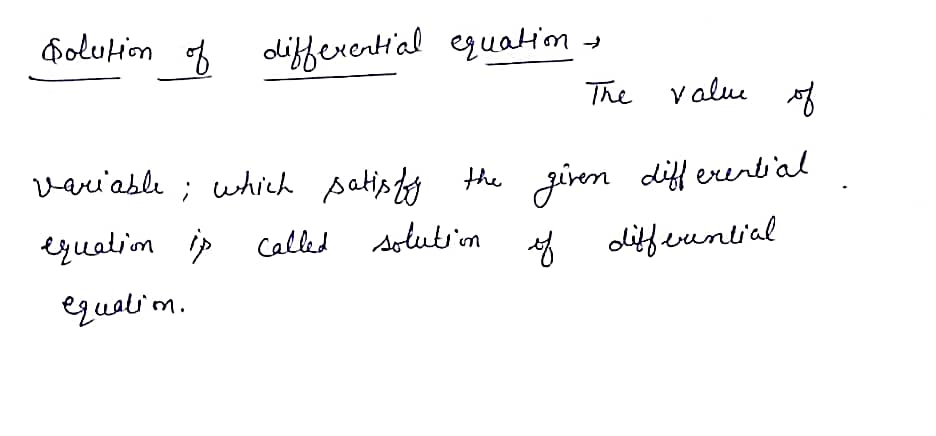 Solution of differential equation →
The value of
variable ; which satisfy the given differential
equation is called solution of differential
equation.